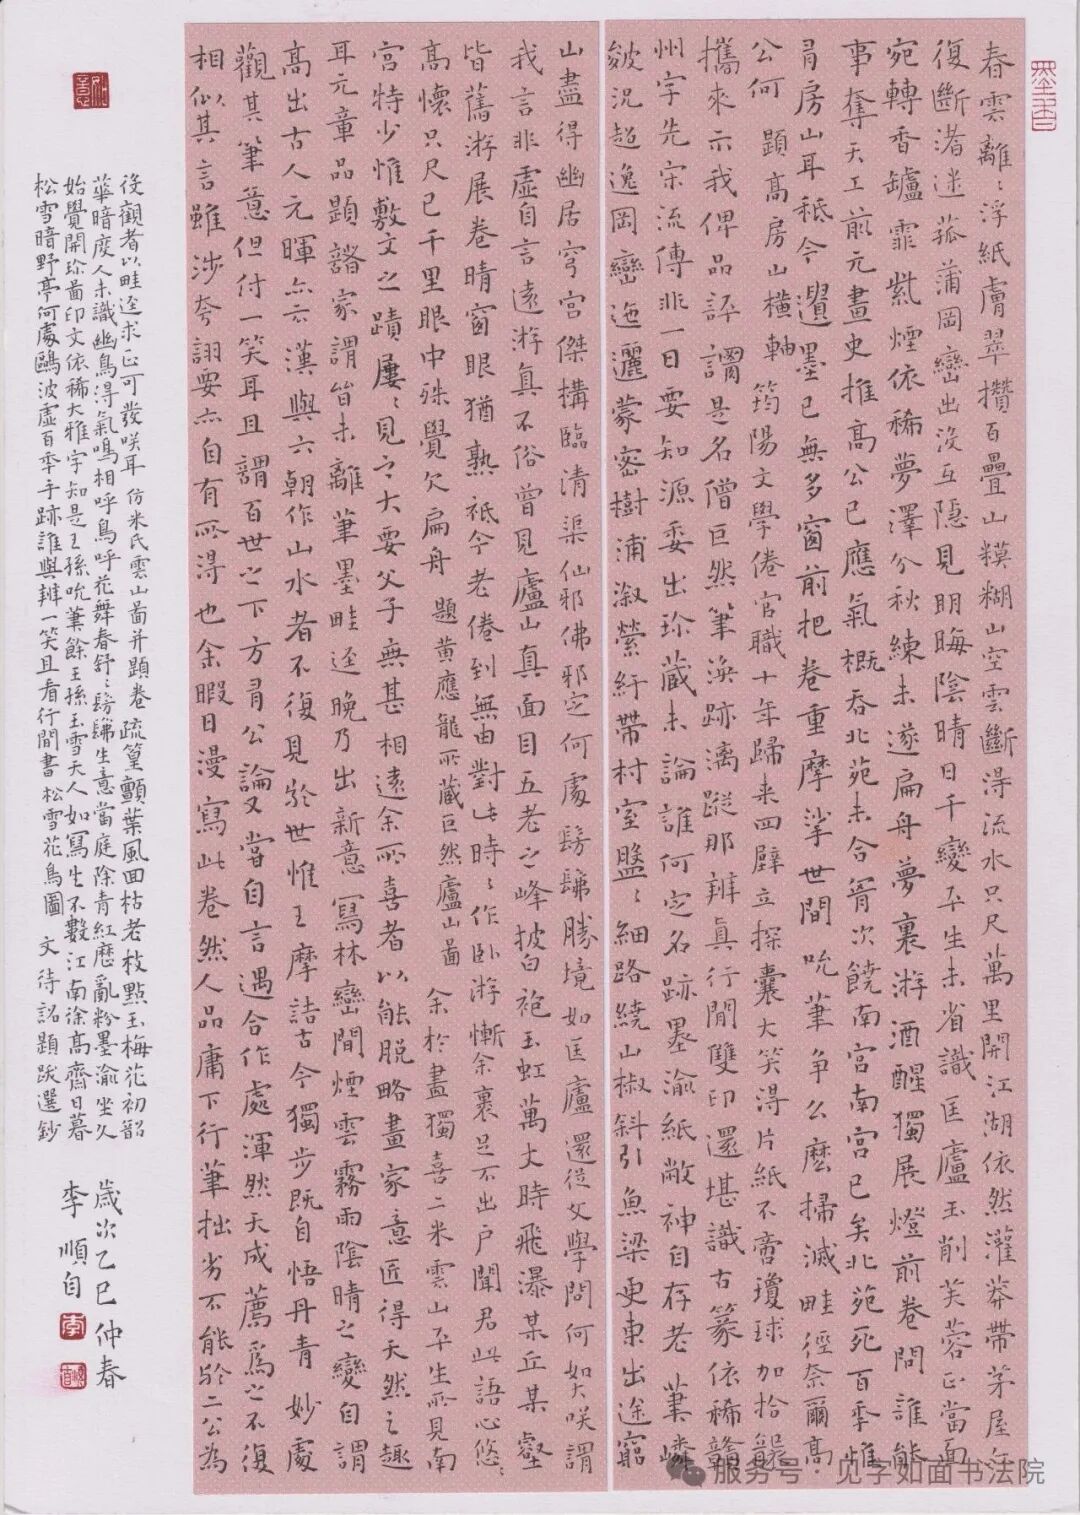 墨香
春雲離〻浮紙膚翠攢百疊山糢糊山空雲斷得流水只尺萬里開江湖依然灌莽帶茅屋
復斷渚迷菰蒲岡巒出沒互隱見明晦陰晴日千變平生未省識匡廬玉削芙蓉正當面
宛轉香罏霏紫煙依稀夢澤分秋練未遂扁舟夢裏游酒醒獨展燈前卷問誰能
事奪天工前元畫史推高公已應氣概吞北苑未合胥次饒南宮南宮已矣北苑死百年惟
有房山耳秪今遺墨已無多窗前把卷重摩挲世間吮筆爭么麼掃滅畦徑奈爾高
公何 題高房山橫軸 筠陽文學倦官職十年歸来四壁立探囊大笑得片紙不啻瓊球加拾襲
攜來示我俾品評謂是名僧巨然筆渙跡漓蹤那辨真行間雙印還堪識古篆依稀贛
州字先宋流傳非一日要知源委出珍藏未論誰何定名跡墨渝紙敝神自存老筆嶙
皴況超逸岡巒迤邐蒙密樹浦溆縈紆帶村室盤〻細路繞山椒斜引魚梁更東出途窮
山盡得幽居穹宮傑構臨清渠仙邪佛邪定何處髣髴勝境如匡廬還從文學問何如大咲謂
我言非虛自言遠游真不俗曾見廬山真面目五老之峰披白袍玉虹萬丈時飛瀑某丘某壑
皆舊游展卷晴窗眼猶熟祇今老倦到無由對此時〻作卧游慚余裹足不出戶聞君此語心悠〻
高懷只尺已千里眼中殊覺欠扁舟 題黄應龍所藏巨然廬山啚 余於畫獨喜二米雲山平生所見南
宮特少惟敷文之蹟屢〻見之大要父子無甚相遠余所喜者以能脱略畫家意匠得天然之趣
耳元章品題諸家謂皆未離筆墨畦逕晚乃出新意寫林巒間煙雲霧雨陰晴之變自謂
高出古人元暉亦云漢與六朝作山水者不復見於世惟王摩詰古今獨步既自悟丹青妙處
觀其筆意但付一笑耳且謂百世之下方有公論又嘗自言遇合作處渾然天成薦為之不復
相似其言雖涉夸詡要亦自有所得也余暇日漫寫此卷然人品庸下行筆拙劣不能於二公為
役觀者以畦逕求正可發咲耳 仿米氏雲山啚并題卷 疏篁顫葉風回枯老枝點玉梅花初韶
華暗度人未識幽鳥得氣鳴相呼鳥呼花舞春舒〻髣髴生意當庭除青紅歷亂粉墨渝坐久
始覺開珍啚印文依稀大雅字知是王孫吮筆餘王孫玉雪天人如寫生不數江南徐高齋日暮
松雪暗野亭何處鷗波虛百年手跡誰與辨一笑且看行間書 松雪花鳥圖 文待詔題跋選鈔
歲次乙巳仲春
李順自
服务号 见字如面书法院